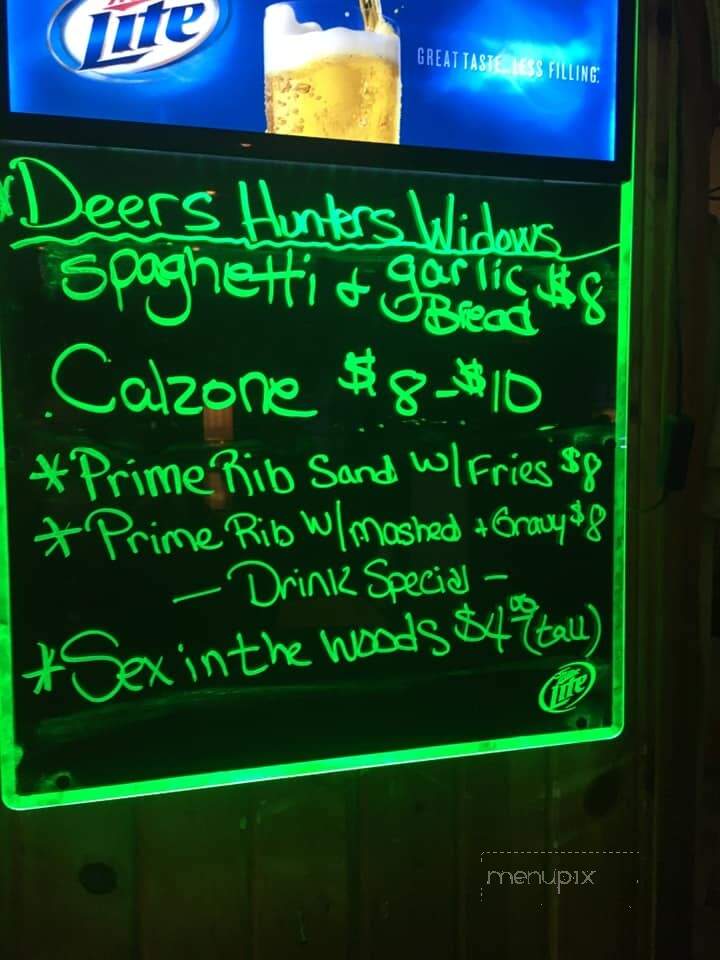 Lite
GREAT TASTE. LESS FILLING.
*Deers Hunters Widows
spaghetti & garlic Bread $8
Calzone $8-$10
*Prime Rib Sand w/Fries $8
*Prime Rib w/mashed + Gravy $8
— Drink Special —
*Sex in the woods $4.00 (tall)
Lite
menupix